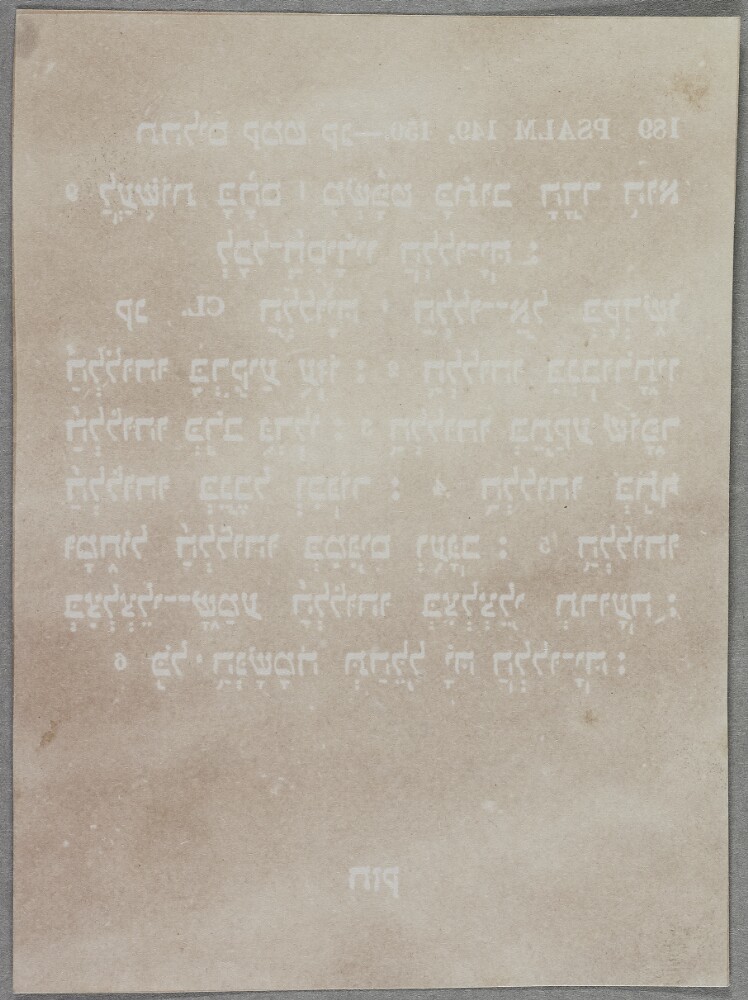 189 PSALM 149, 150.—תהלים קמט קנ
9 לַעֲשׂוֹת בָּהֶם ׀ מִשְׁפָּט כָּתוּב הָדָר הוּא
לְכָל־חֲסִידָיו הַלְלוּ־יָהּ׃
קנ CL. הַלְלוּיָהּ ׀ הַלְלוּ־אֵל בְּקָדְשׁוֹ
הַלְלוּהוּ בִּרְקִיעַ עֻזּוֹ׃ 2 הַלְלוּהוּ בִגְבוּרֹתָיו
הַלְלוּהוּ כְּרֹב גֻּדְלוֹ׃ 3 הַלְלוּהוּ בְּתֵקַע שׁוֹפָר
הַלְלוּהוּ בְּנֵבֶל וְכִנּוֹר׃ 4 הַלְלוּהוּ בְתֹף
וּמָחוֹל הַלְלוּהוּ בְּמִנִּים וְעֻגָב׃ 5 הַלְלוּהוּ
בְצִלְצְלֵי־שָׁמַע הַלְלוּהוּ בְּצִלְצְלֵי תְרוּעָה׃
6 כֹּל הַנְּשָׁמָה תְּהַלֵּל יָהּ הַלְלוּ־יָהּ׃
חזק